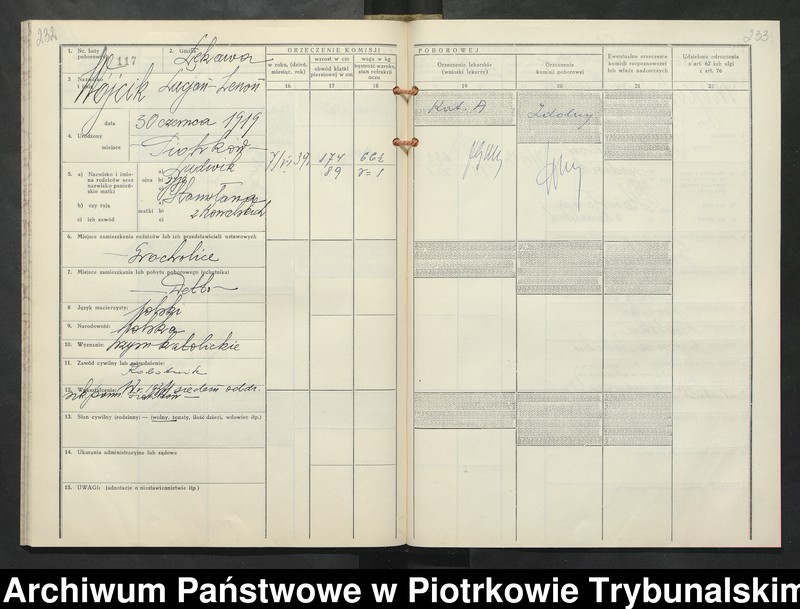 232
233
1. Nr. listy poborowej 117
2. Gmina Łękawa
3. Nazwisko i imię Wójcik
4. Urodzony
data 30 czerwca 1919
miejsce Piotrków
5. a) Nazwisko i imiona rodziców oraz nazwisko panieńskie matki
b) czy żyją
c) ich zawód
ojca a) Ludwik
b)
c)
matki a)
b)
c)
6. Miejsce zamieszkania rodziców lub ich przedstawicieli ustawowych
Grocholice
7. Miejsce zamieszkania lub pobytu poborowego (ochotnika)
8. Język macierzysty: polski
9. Narodowość: polska
10. Wyznanie: rzym katolickie
11. Zawód cywilny lub zatrudnienie:
Robotnik
12. Wykształcenie:
siedem oddz.
13. Stan cywilny (rodzinny): — (wolny, żonaty, ilość dzieci, wdowiec itp.)
14. Ukarania administracyjne lub sądowe
15. UWAGI: (adnotacje o niestawiennictwie itp.)
ORZECZENIE KOMISJI
POBOROWEJ
w roku, (dzień, miesiąc, rok)
16
wzrost w cm
obwód klatki piersiowej w cm
17
waga w kg
bystrość wzroku, stan refrakcji oczu
18
Orzeczenie lekarskie
(wnioski lekarzy)
19
Orzeczenie
komisji poborowej
20
Ewentualne orzeczenie
komisji rozpoznawczej
lub władz nadzorczych
21
Udzielone odroczenia
z art. 62 lub ulgi
z art. 76
22
Kat. A
Zdolny
7/VI 39.
174
89
66½
v = 1
Archiwum Państwowe w Piotrkowie Trybunalskim